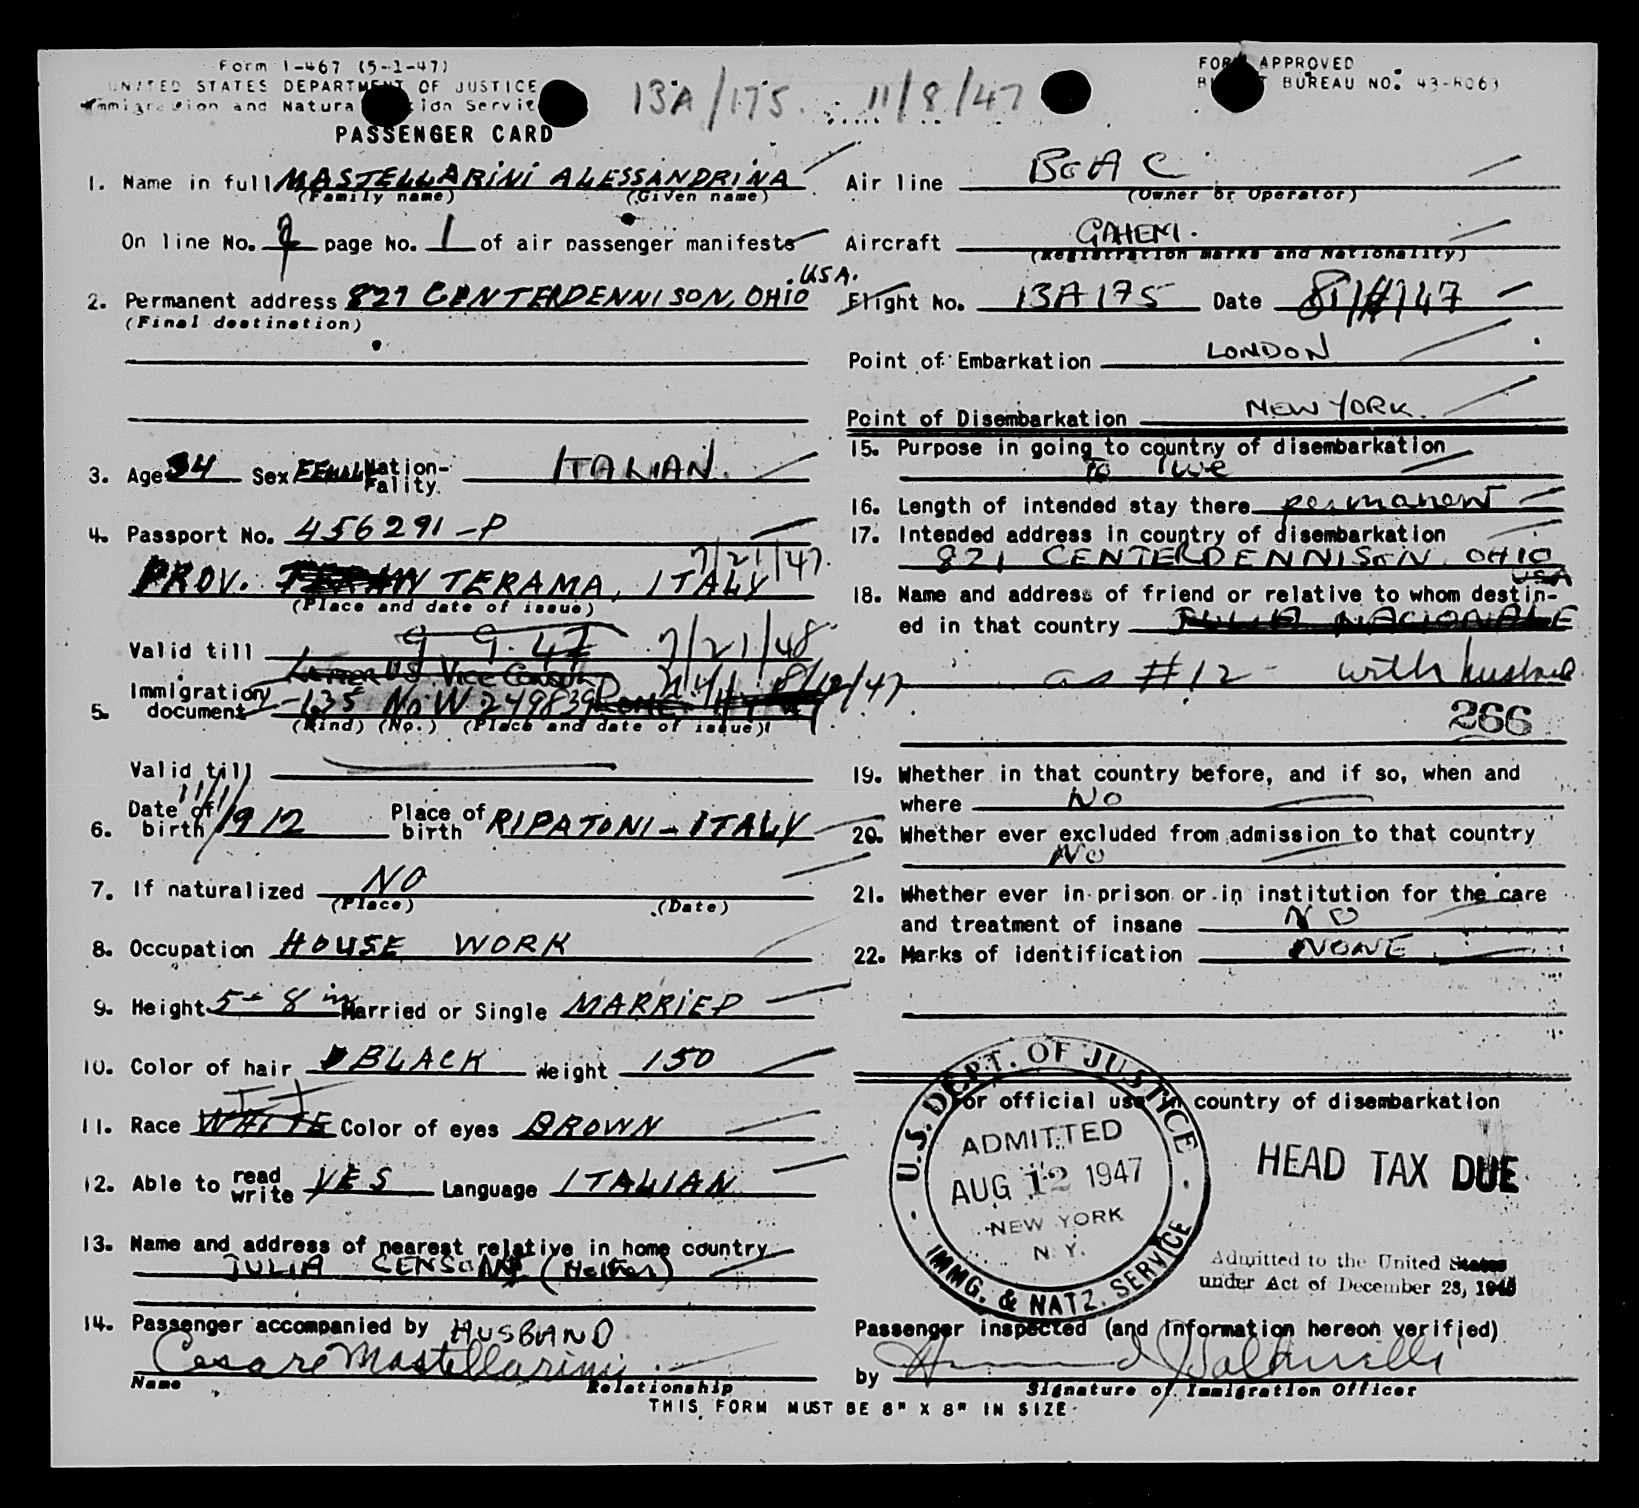 Form I-467 (5-1-47)
UNITED STATES DEPARTMENT OF JUSTICE
Immigration and Naturalization Service
PASSENGER CARD
13A/175. 11/8/47
FORM APPROVED
BUDGET BUREAU NO. 43-R063
1. Name in full MASTELLARINI ALESSANDRINA
(Family name) (Given name)
On line No. 9 page No. 1 of air passenger manifests
2. Permanent address 827 CENTERDENNISON, OHIO USA.
(Final destination)
3. Age 34 Sex FEMALE Nationality ITALIAN.
4. Passport No. 456291-P
7/21/47.
PROV. TERAMA, ITALY
(Place and date of issue)
Valid till 7/21/48
5. Immigration document 135 No W 249839 ROME.
(Kind) (No.) (Place and date of issue)
Valid till
6. Date of birth 11/1/1912 Place of birth RIPATONI - ITALY
7. If naturalized NO
(Place) (Date)
8. Occupation HOUSE WORK
9. Height 5 - 8 in Married or Single MARRIED
10. Color of hair BLACK Weight 150
11. Race WHITE Color of eyes BROWN
12. Able to read write YES Language ITALIAN
13. Name and address of nearest relative in home country
JULIA CENSONI (Mother)
14. Passenger accompanied by HUSBAND
Cesare Mastellarini
Name Relationship
Air line BOAC
(Owner or Operator)
Aircraft GAHEM.
(Registration marks and Nationality)
Flight No. 13A175 Date
Point of Embarkation LONDON
Point of Disembarkation NEW YORK.
15. Purpose in going to country of disembarkation
To live
16. Length of intended stay there permanent
17. Intended address in country of disembarkation
821 CENTERDENNISON, OHIO
USA
18. Name and address of friend or relative to whom destin-
ed in that country JULIA NACIONALE
as #12 - with husband
266
19. Whether in that country before, and if so, when and
where NO
20. Whether ever excluded from admission to that country
NO
21. Whether ever in prison or in institution for the care
and treatment of insane NO
22. Marks of identification NONE
For official use in country of disembarkation
U.S. DEPT. OF JUSTICE
ADMITTED
AUG 12 1947
NEW YORK
N.Y.
IMMG. & NATZ. SERVICE
HEAD TAX DUE
Admitted to the United States
under Act of December 28, 1945
Passenger inspected (and information hereon verified)
by
Signature of Immigration Officer
THIS FORM MUST BE 8" X 8" IN SIZE